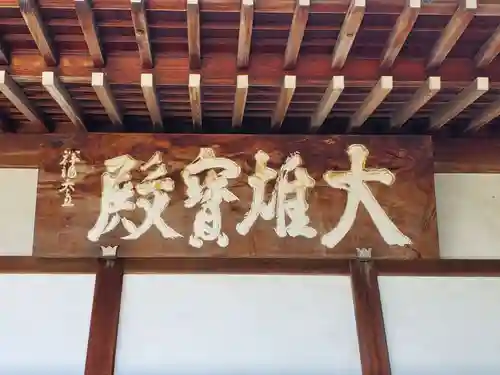 大雄寳殿